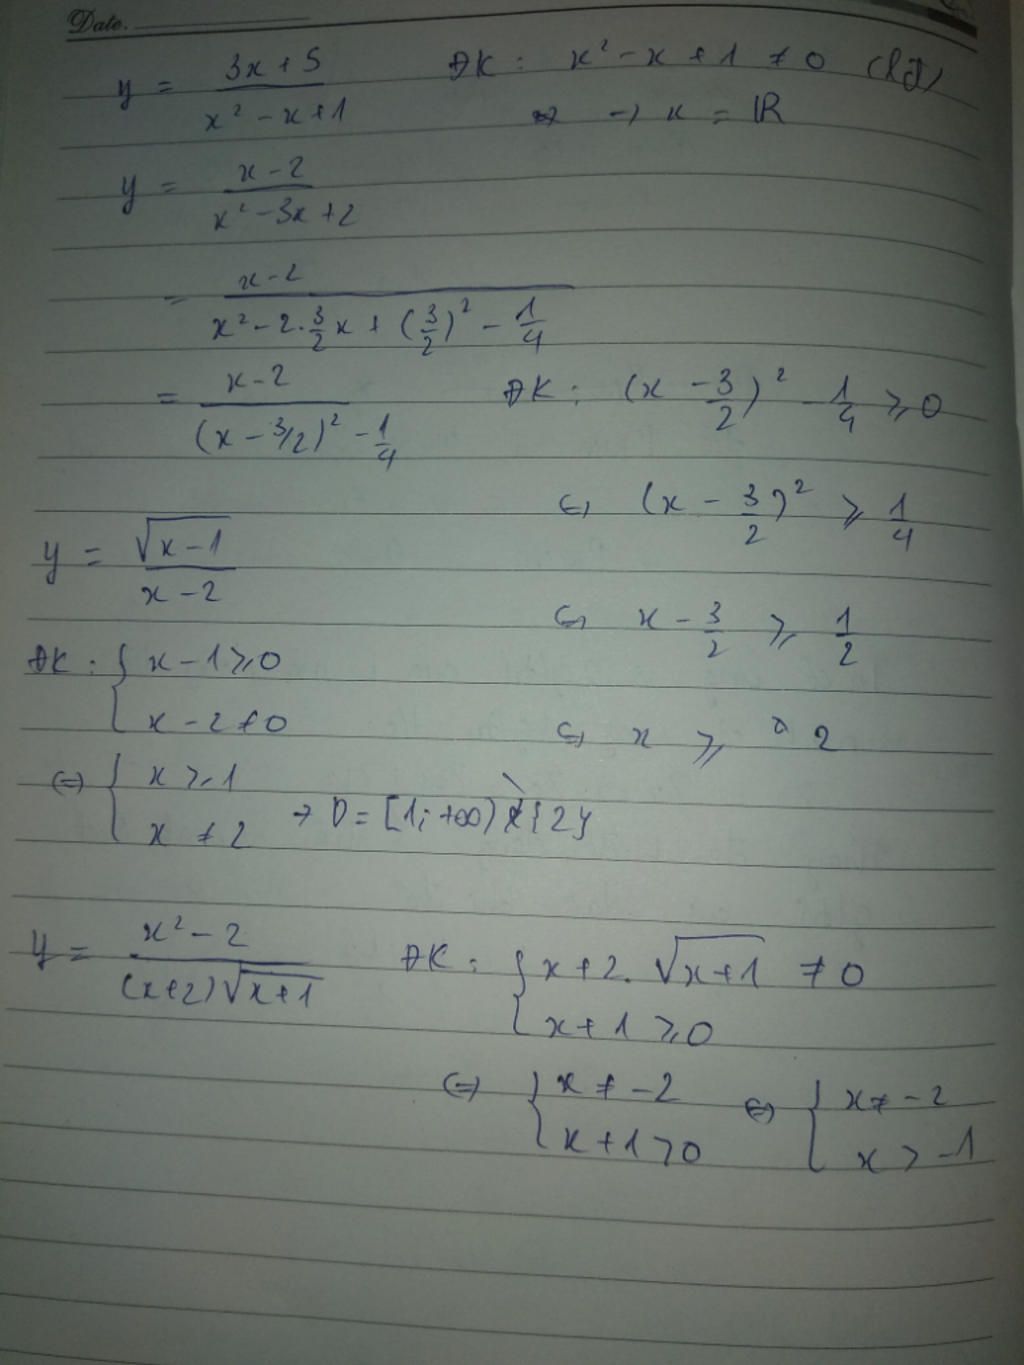 Date.
y = (3x + 5)/(x² - x + 1) ĐK: x² - x + 1 ≠ 0 (lđ)
→ x = ℝ
y = (x - 2)/(x² - 3x + 2)
= (x - 2)/(x² - 2.3/2x + (3/2)² - 1/4)
= (x - 2)/((x - 3/2)² - 1/4) ĐK: (x - 3/2)² - 1/4 ⩾ 0
⇔ (x - 3/2)² ⩾ 1/4
y = √(x - 1)/(x - 2)
⇔ x - 3/2 ⩾ 1/2
ĐK: { x - 1 ⩾ 0
x - 2 ≠ 0
⇔ x ⩾ 2
⇔ { x ⩾ 1
x ≠ 2 → D = [1; +∞) \ {2}
y = (x² - 2)/((x+2)√(x+1)) ĐK: { x + 2. √(x+1) ≠ 0
x + 1 ⩾ 0
⇔ { x ≠ -2 ⇔ { x ≠ -2
x + 1 > 0 x > -1